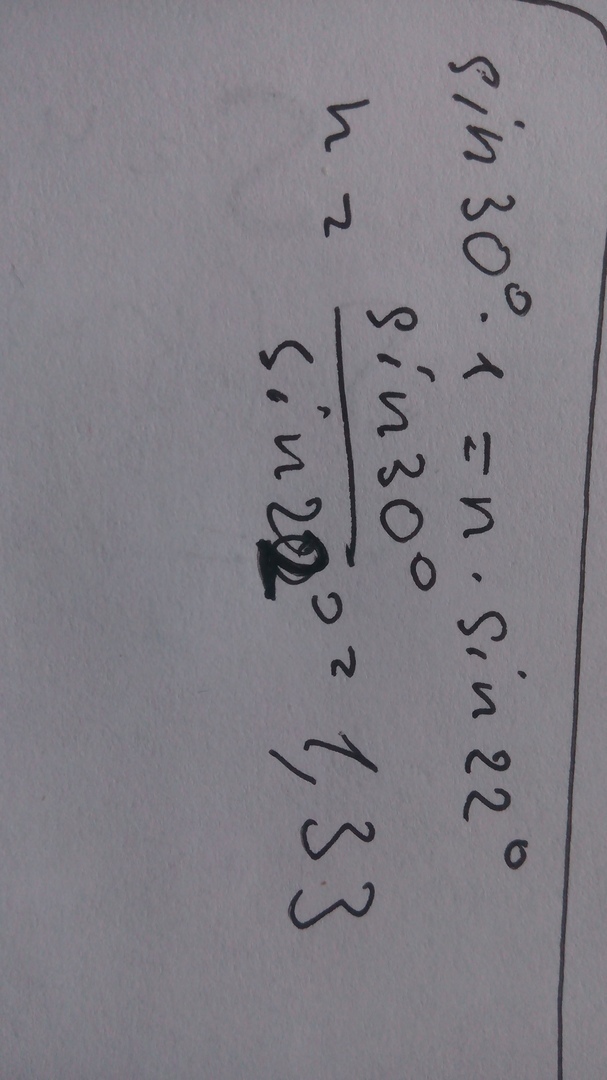 sin30°·1=n·sin22°
n = sin30° / sin22° = 1,33